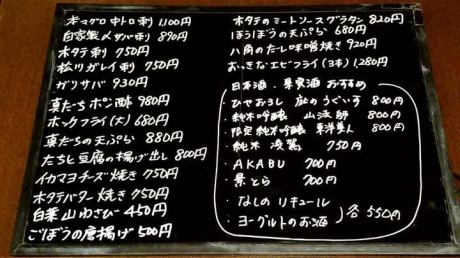 本マグロ 中トロ刺 1,100円
自家製〆サバ刺 890円
ホタテ刺 750円
松川ガレイ刺 750円
ガリサバ 930円
真だちポン酢 980円
ホッケフライ(大) 680円
真だちの天ぷら 880円
たちと豆腐の揚げ出し 800円
イカマヨチーズ焼き 750円
ホタテバター焼き 750円
白菜山わさび 450円
ごぼうの唐揚げ 500円
ホタテのミートソースグラタン 820円
ほうぼうの天ぷら 680円
八角のだし味噌焼き 920円
おっきなエビフライ(3本) 1,280円
日本酒・果実酒 おすすめ
・ひやおろし 庭のうぐいす 800円
・純米吟醸 山法師 800円
・限定純米吟醸 東洋美人 800円
・純米 浚駕 750円
・AKABU 700円
・景とら 700円
・なしのリキュール
・ヨーグルトのお酒 各550円